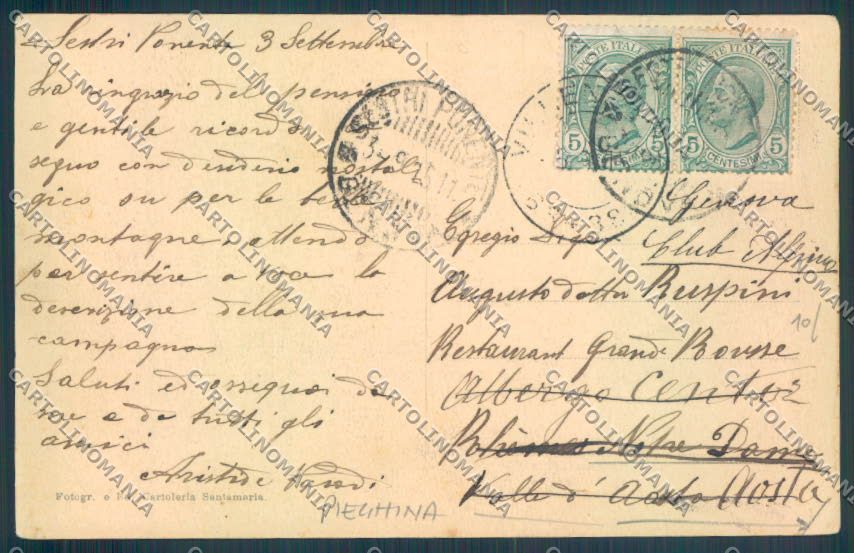 Sestri Ponente 3 Settembre
La ringrazio del pensiero
e gentile ricordo
seguo con desiderio nostal
gico su per le belle
montagne, attendo
per sentire a voce la
descrizione della sua
campagna
Saluti ed ossequi da
me e da tutti gli
amici
Aristide
Fotogr. e Cartoleria Santamaria.
PIEGHINA
POSTE ITALIANE
5 CENTESIMI 5
POSTE ITALIANE
5 CENTESIMI 5
SESTRI PONENTE
Genova
Egregio Signor Club Alpino
Augusto dottor Ruspini
Restaurant Grande Bourse
Albergo
Notre Dame
Valle d'Aosta Aosta
10/
CARTOLINOMANIA